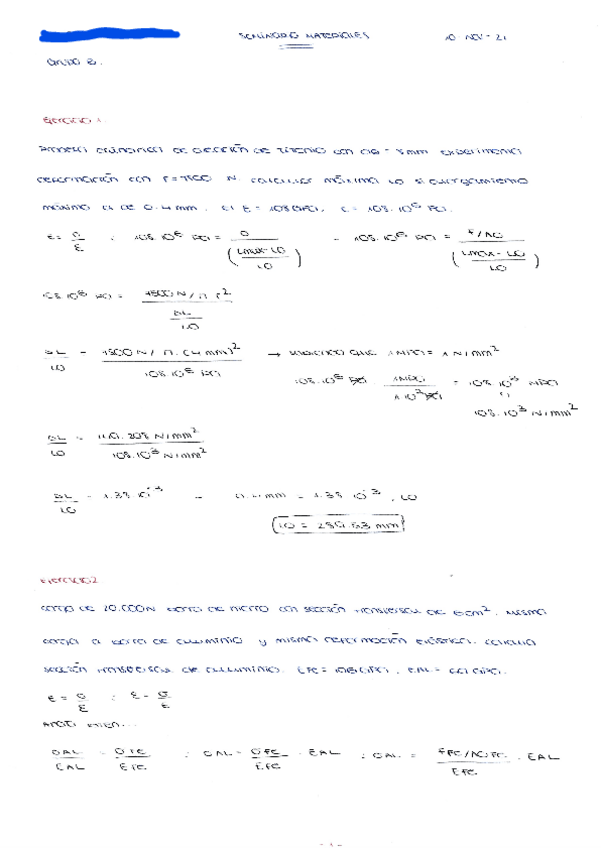 SEMINARIO MATERIALES 10-NOV-21
GRUPO 2.
Ejercicio 1
probeta cilíndrica de aleación de titanio con D0 = 8mm experimenta
deformación con F = N. calcular máxima L0 si alargamiento
máximo es de 0.4mm. si E = 108 GPa, E = 108·10⁶ KPa.
E = σ/ε ; 108·10⁶ KPa = σ/((Lmax-L0)/L0) → 108·10⁶ KPa = F/A0/((Lmax-L0)/L0)
108·10⁶ KPa = N/π·r²/(ΔL/L0)
ΔL/L0 = N/π·(4mm)²/108·10⁶ KPa → sabiendo que 1MPa = 1N/mm²
108·10⁶ KPa · 1MPa/1·10³ KPa = 108·10³ MPa
108·10³ N/mm²
ΔL/L0 = N/mm²/108·10³ N/mm²
ΔL/L0 = 1.38·10⁻³ → 0.4mm = 1.38·10⁻³ · L0
L0 = mm
Ejercicio 2
carga de 20.000N barra de hierro con sección transversal de 6cm². Misma
carga a barra de aluminio y misma deformación elástica. calcula
sección transversal de aluminio. EFe = GPa, EAL = GPa.
E = σ/ε ; ε = σ/E
ahora bien...
σAL/EAL = σFe/EFe ; σAL = σFe/EFe · EAL ; σAL = FFe/A0Fe/EFe · EAL
-1-